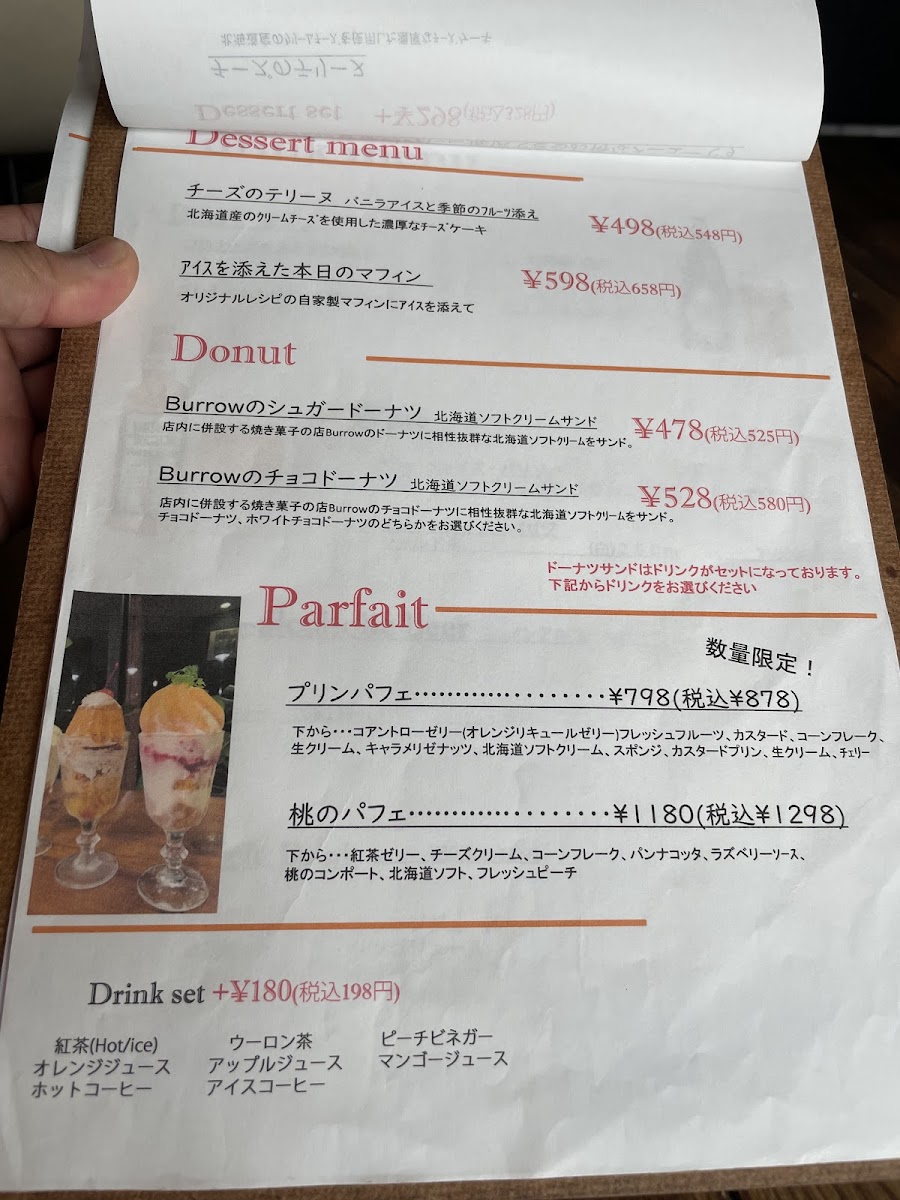 Dessert set +¥298(税込328円)
チーズのテリーヌ
北海道産のクリームチーズを使用した濃厚なチーズケーキ
Dessert menu
チーズのテリーヌ バニラアイスと季節のフルーツ添え
¥498(税込548円)
北海道産のクリームチーズを使用した濃厚なチーズケーキ
アイスを添えた本日のマフィン
¥598(税込658円)
オリジナルレシピの自家製マフィンにアイスを添えて
Donut
Burrowのシュガードーナツ 北海道ソフトクリームサンド
¥478(税込525円)
店内に併設する焼き菓子の店Burrowのドーナツに相性抜群な北海道ソフトクリームをサンド。
Burrowのチョコドーナツ 北海道ソフトクリームサンド
¥528(税込580円)
店内に併設する焼き菓子の店Burrowのチョコドーナツに相性抜群な北海道ソフトクリームをサンド。
チョコドーナツ、ホワイトチョコドーナツのどちらかをお選びください。
ドーナツサンドはドリンクがセットになっております。
下記からドリンクをお選びください
Parfait
数量限定!
プリンパフェ・・・・・・・・・・・・・・・・・・・・・・¥798(税込¥878)
下から・・・コアントローゼリー(オレンジリキュールゼリー)フレッシュフルーツ、カスタード、コーンフレーク、
生クリーム、キャラメリゼナッツ、北海道ソフトクリーム、スポンジ、カスタードプリン、生クリーム、チェリー
桃のパフェ・・・・・・・・・・・・・・・・・・・・・・¥1180(税込¥1298)
下から・・・紅茶ゼリー、チーズクリーム、コーンフレーク、パンナコッタ、ラズベリーソース、
桃のコンポート、北海道ソフト、フレッシュピーチ
Drink set +¥180(税込198円)
紅茶(Hot/ice)
オレンジジュース
ホットコーヒー
ウーロン茶
アップルジュース
アイスコーヒー
ピーチビネガー
マンゴージュース